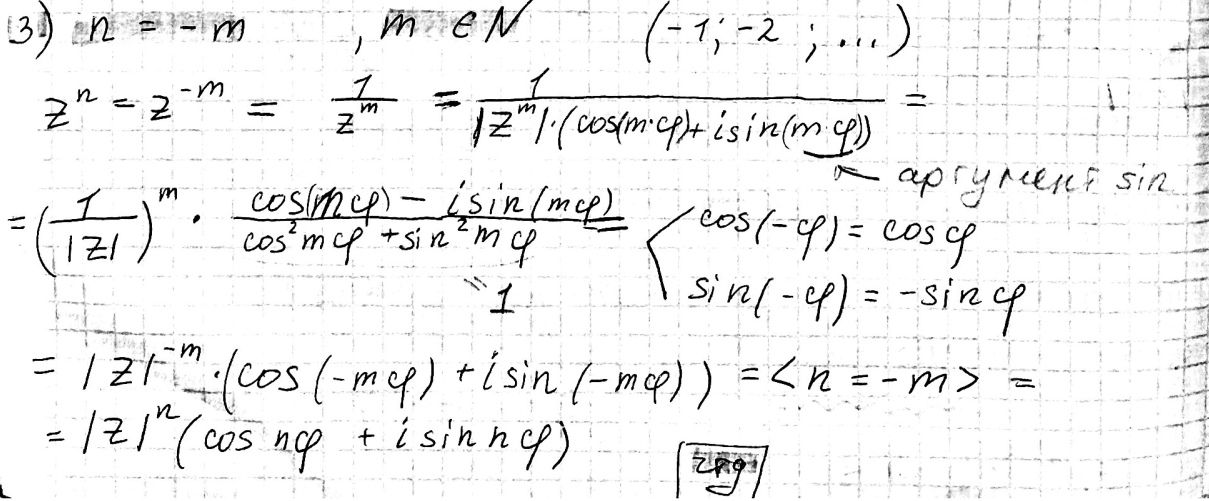 3) n = -m , m ∈ N (-1; -2 ; ...)
zⁿ = z⁻ᵐ = 1/zᵐ = 1/(|zᵐ|·(cos(m·φ) + i sin(m·φ))) =
← аргумент sin
= (1/|z|)ᵐ · (cos(mφ) - i sin(mφ))/(cos²mφ + sin²mφ) = < cos(-φ) = cosφ
"1 sin(-φ) = -sinφ
= |z|⁻ᵐ·(cos(-mφ) + i sin(-mφ)) = <n = -m> =
= |z|ⁿ(cos nφ + i sin nφ)